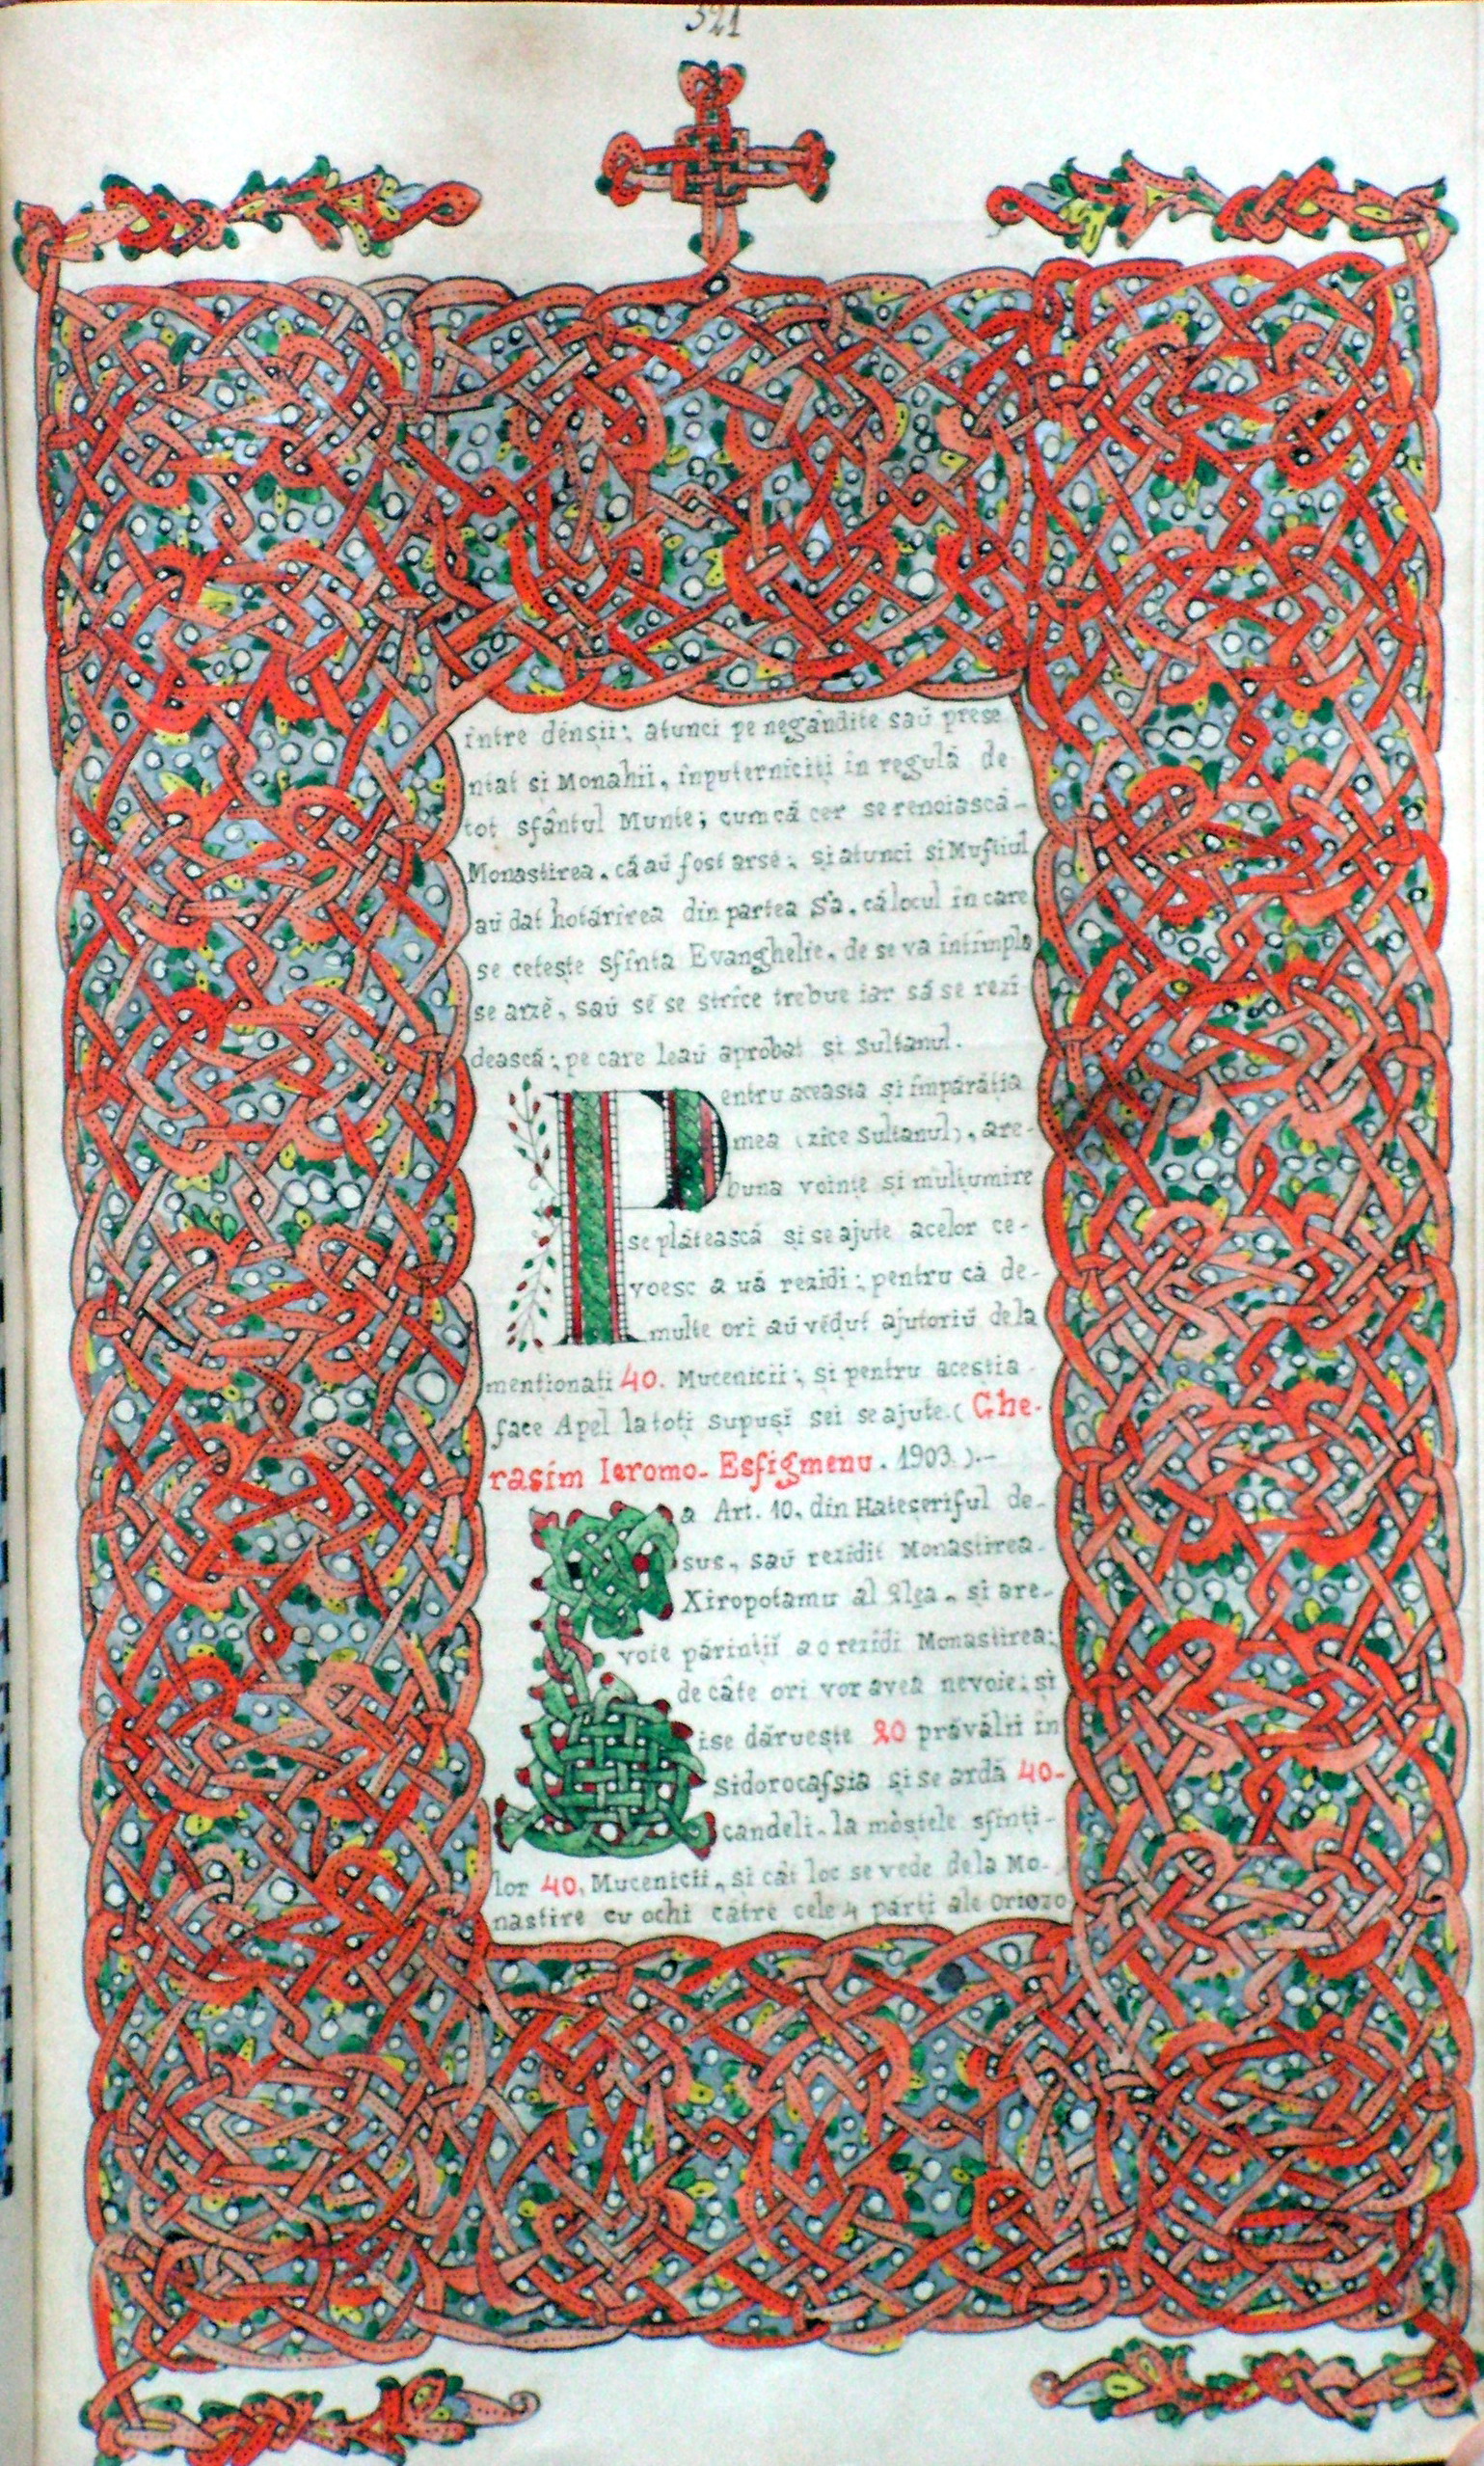 321
între dénșii; atunci pe negândite saŭ prese
ntat și Monahii, înputerniciți în regulă de
tot sfântul Munte; cumcă cer se renoiască-
Monastirea, că aŭ fost arse; și atunci și Muftiul
aŭ dat hotărîrea din partea S'a, că locul în care
se cetește sfînta Evanghelie, de se va întîmpla
se arzĕ, saŭ sĕ se strice trebue iar să se rezi
dească; pe care leaŭ aprobat și Sultanul.
Pentru aceasta și împărăția
mea (zice Sultanul), are-
buna voințe și mulțumire
se plătească și se ajute acelor ce-
voesc a uă rezidi; pentru că de-
multe ori aŭ vĕdut ajutoriŭ de la
menționati 40. Mucenicii; și pentru acestia
face Apel la toți supușĭ sei se ajute. (Ghe-
rasim Ieromo- Esfigmenu. 1903).-
La Art. 10. din Hateșeriful de-
sus, saŭ rezidit Monastirea-
Xiropotamu al 2lea, și are-
voie părinții a o rezidi Monastirea;
de câte ori vor avea nevoie; și
ise dăruește 20 prăvălii în
Sidorocafsia și se ardă 40-
candeli- la moștele sfinți-
lor 40, Mucenicii, și cât loc se vede de la Mo-
nastire cu ochi către cele 4 părți ale Oriozo